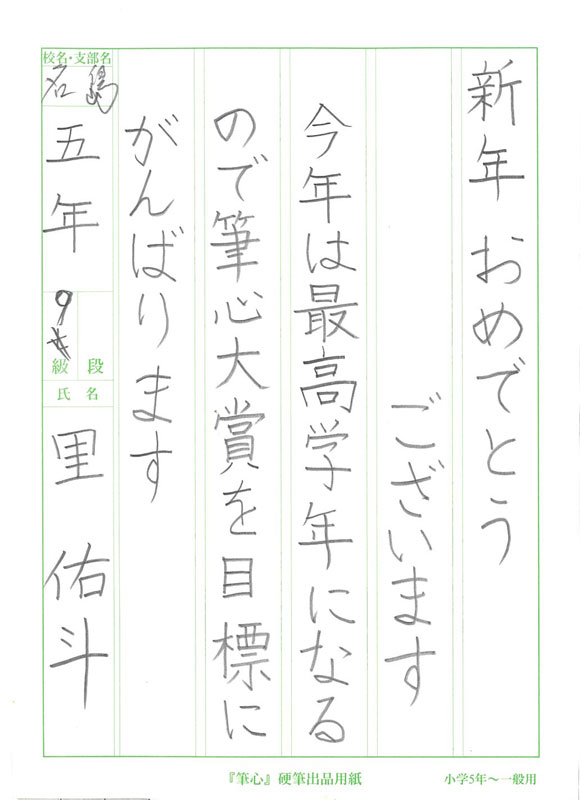 新年おめでとう
ございます
今年は最高学年になる
ので筆心大賞を目標に
がんばります
校名・支部名
名島
五年
9
級 段
氏名
里 佑斗
『筆心』硬筆出品用紙
小学5年〜一般用